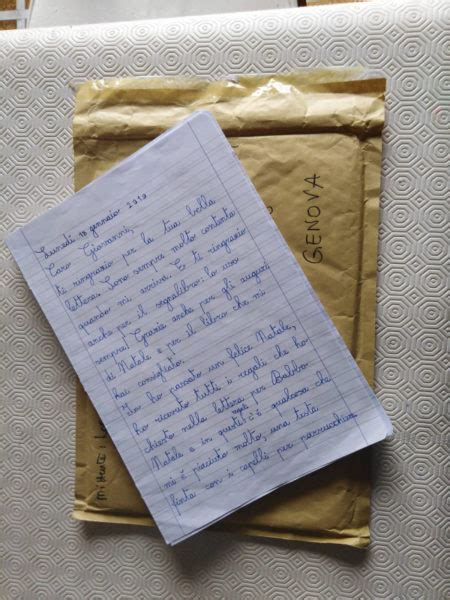 Lunedì 18 gennaio 2010
Caro Giovanni,
ti ringrazio per la tua bella
lettera. Sono sempre molto contenta
quando mi arriva. E ti ringrazio
anche per il segnalibro: lo uso
sempre! Grazie anche per gli auguri
di Natale e per il libro che mi
hai consigliato.
Io ho passato un felice Natale,
ho ricevuto tutti i regali che ho
chiesto nella lettera per Babbo
Natale e in questi regali c'è qualcosa che
mi è piaciuto molto, una testa
finta con i capelli per parrucchiera
GENOVA
Mittente: